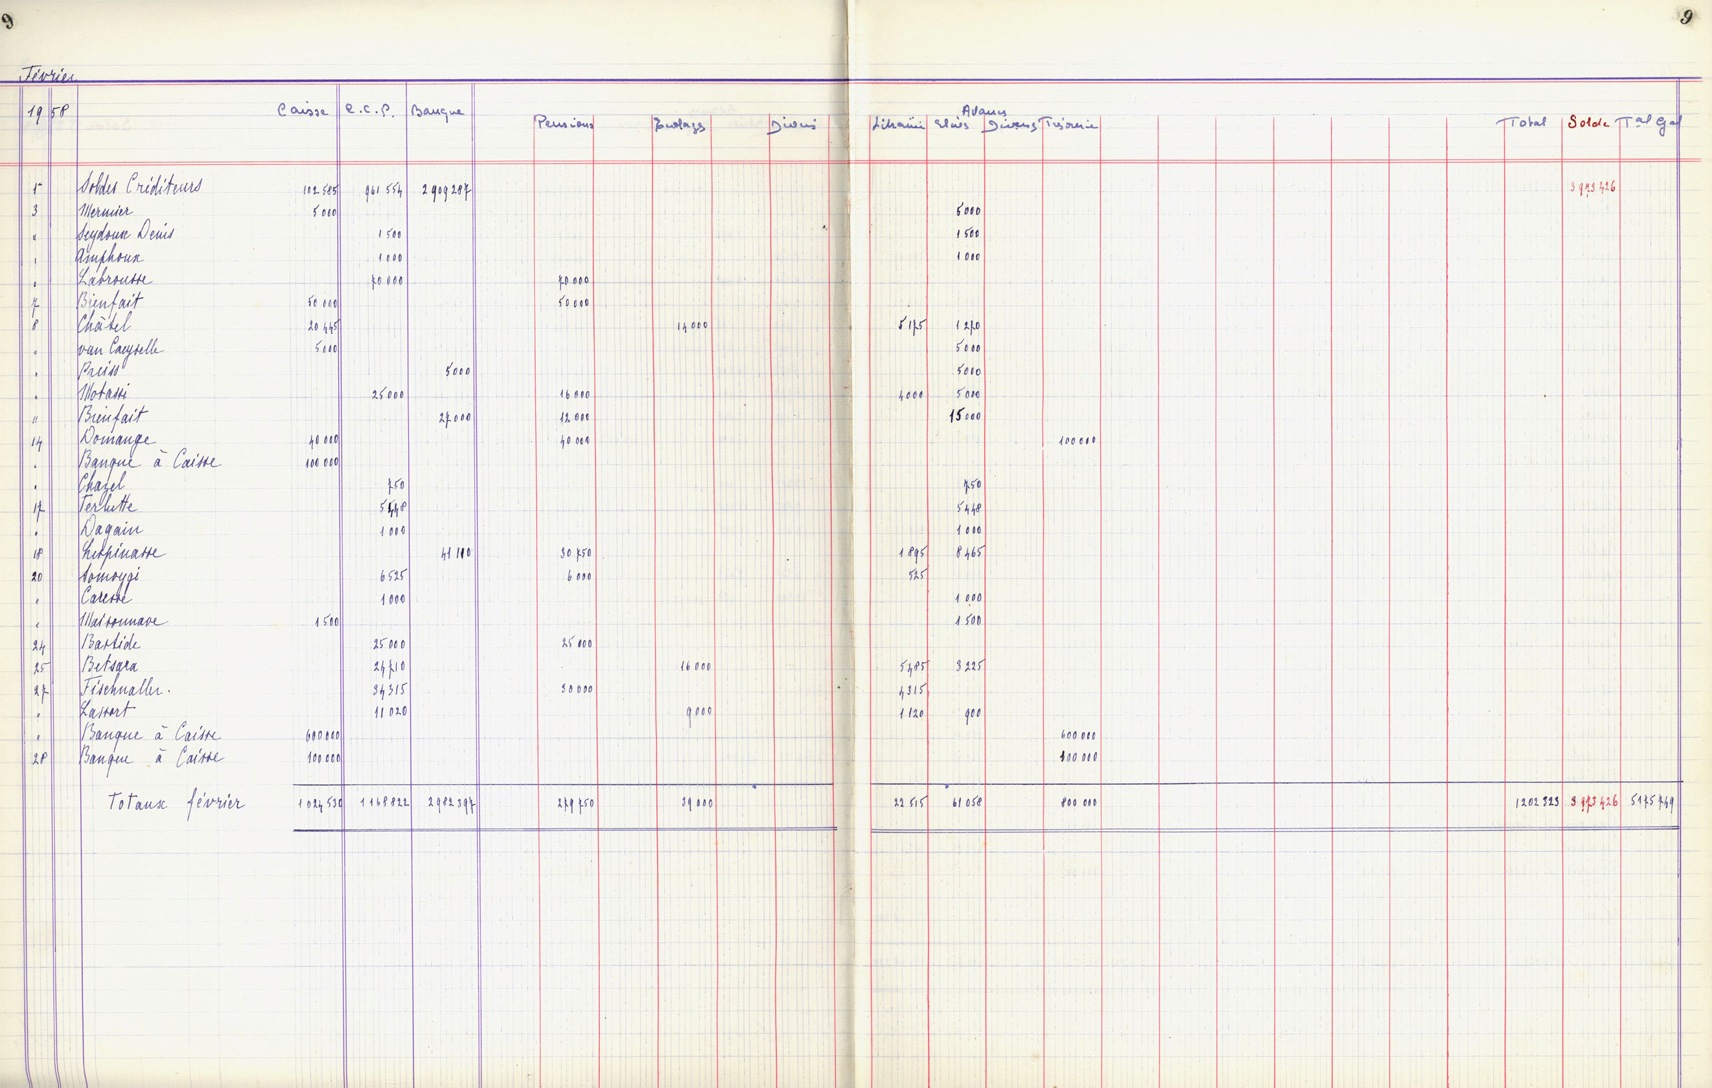 9 9
Février
19 58 Caisse C.C.P. Banque Pensions Ecolage Divers Librairie Avances Elèves Divers Trésorerie Total Solde Tal Gal
1 Soldes Créditeurs 102 585 961 554 2 909 287 3 973 426
3 Mermier 5 000 5 000
" Seydoux Denis 1 500 1 500
" Amphoux 1 000 1 000
" Labrousse 70 000 70 000
7 Bienfait 50 000 50 000
8 Châtel 20 445 14 000 5 175 1 270
" van Caeyselle 5 000 5 000
" Preiss 5 000 5 000
" Motassi 25 000 16 000 4 000 5 000
" Bienfait 27 000 12 000 15 000
14 Domange 40 000 40 000 100 000
" Banque à Caisse 100 000
" Chazel 750 750
17 Terlutte 5 448 5 448
" Dagain 1 000 1 000
18 Lespinasse 41 110 30 750 1 895 8 465
20 Somoygi 6 525 6 000 525
" Caresse 1 000 1 000
" Maisonnave 1 500 1 500
24 Bastide 25 000 25 000
25 Betsara 24 710 16 000 5 485 3 225
27 Fischnaller. 34 315 30 000 4 315
" Lassort 11 020 9 000 1 120 900
" Banque à Caisse 600 000 600 000
28 Banque à Caisse 100 000 100 000
Totaux février 1 024 530 1 168 822 2 982 397 279 750 39 000 22 515 61 058 800 000 1 202 323 3 973 426 5 175 749